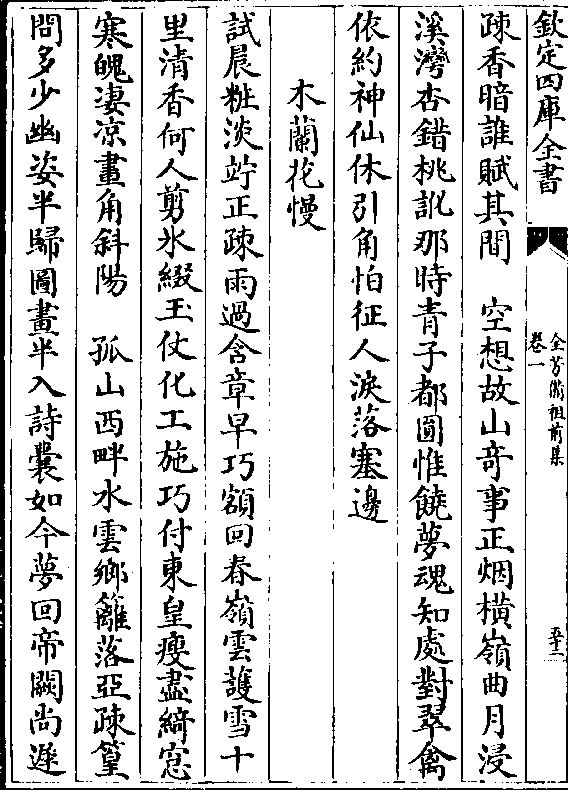 欽定四庫全書
全芳備祖前集
卷一
五十二
疎香暗誰賦其間　空想故山奇事正烟橫嶺曲月浸
溪灣杏錯桃訛那時青子都圓惟饒夢魂知處對翠禽
依約神仙休引角怕征人淚落塞邊
木蘭花慢
試晨粧淡竚正疎雨過含章早巧額回春嶺雲護雪十
里清香何人剪氷綴玉仗化工施巧付東皇瘦盡綺窓
寒魄凄凉畫角斜陽　孤山西畔水雲鄉籬落亞疎篁
問多少幽姿半歸圖畫半入詩囊如今夢回帝闕尚遲